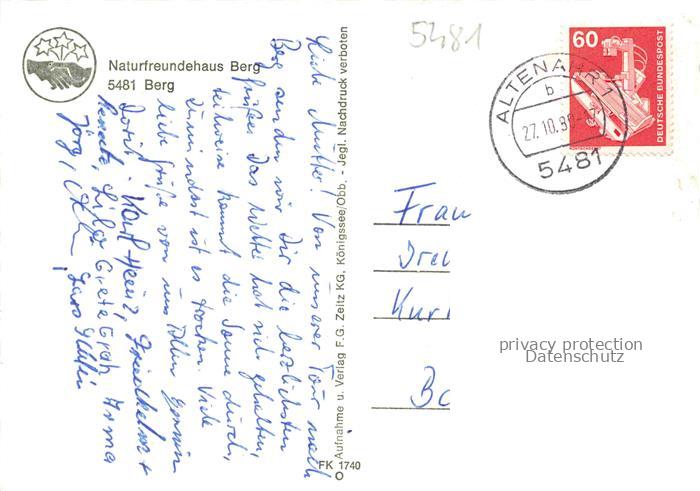 Naturfreundehaus Berg
5481 Berg
5481
60
DEUTSCHE BUNDESPOST
ALTENAHR 1
b
27.10.80
5481
Liebe Mutter! Von unserer Tour nach
Berg senden wir Dir die herzlichsten
Grüße. Das Wetter hat sich gehalten,
teilweise kommt die Sonne durch,
zumindest ist es trocken. Viele
liebe Grüße von uns Allen
Dorit, Karl-Heinz, +
Renate, Grete
Jörg,
Aufnahme u. Verlag F.G. Zeitz KG, Königssee/Obb. - Jegl. Nachdruck verboten
FK 1740
Frau
Kur
privacy protection
Datenschutz